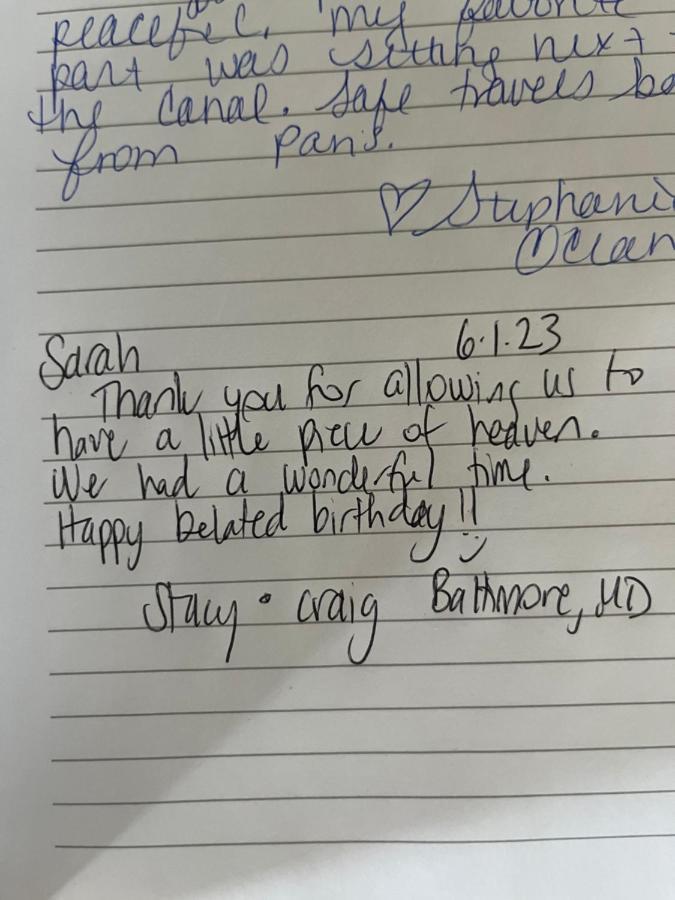 peaceful. my favorite
part was sitting next
the canal. Safe travels
from Paris.
♡ Stephani
Ocean
Sarah 6.1.23
Thank you for allowing us to
have a little piece of heaven.
We had a wonderful time.
Happy belated birthday!!
Stacy • Craig Baltimore, MD